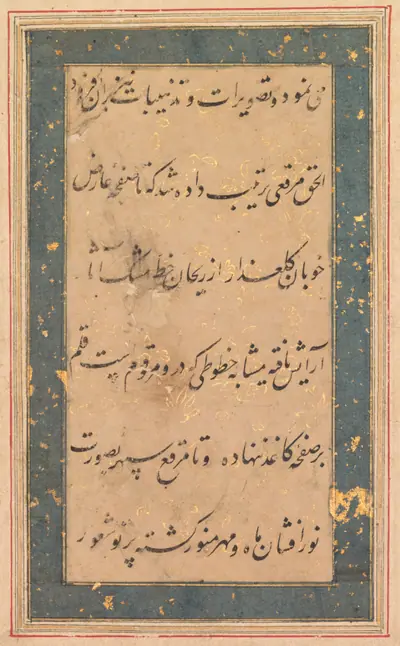 می نمود و تصویرات و تذهیبات نیز بران فزود
الحق مرقعی ترتیب داده شد که تا صفحه عارض
خوبان گلعذار از ریحان خط مشک آسا
آرایش یافته مشابه خطوطی که درو مرقوم است قلم
بر صفحه کاغذ نهاده و تا مرقع سپهر بصورت
نور افشان ماه و مهر منور گشته پرتو شعور